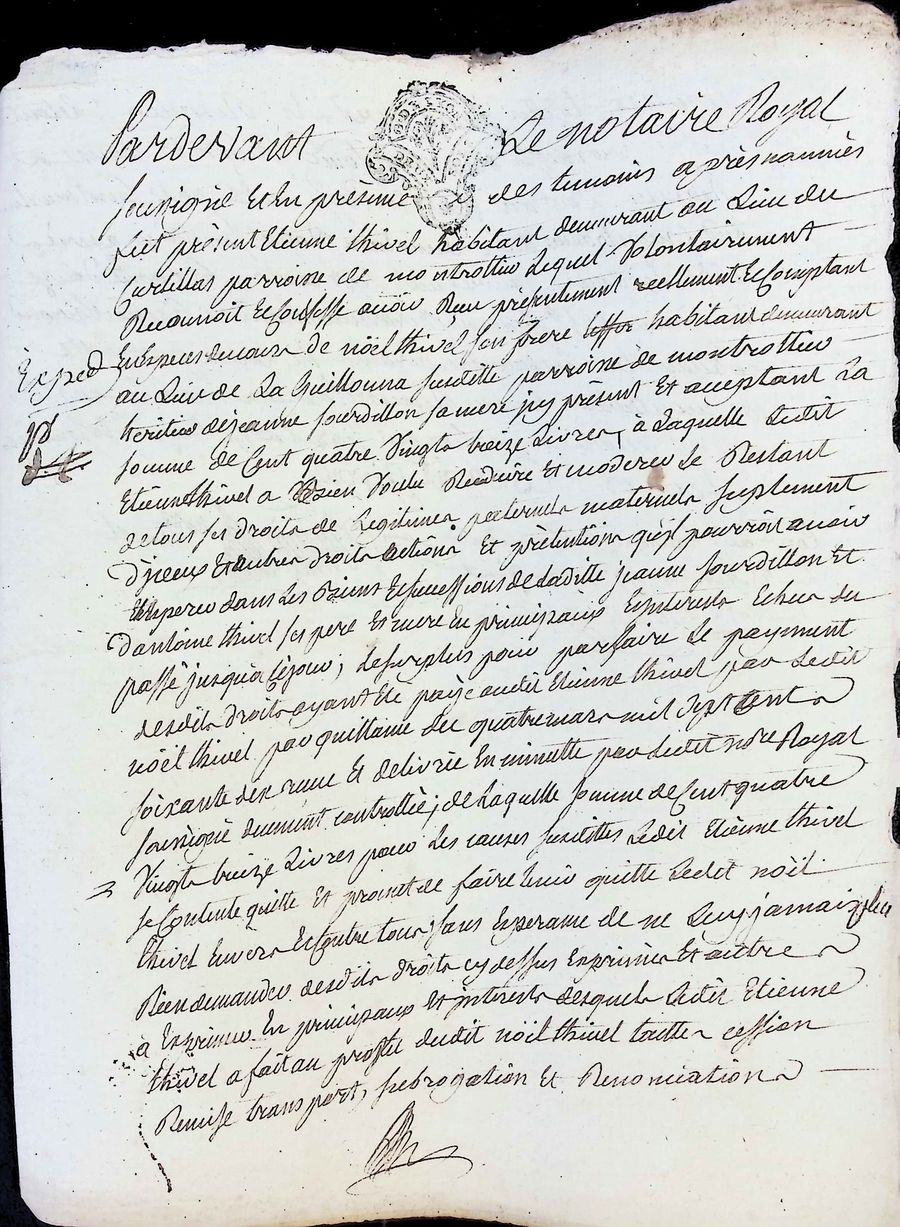 Pardevant Le notaire Royal
soussigné Et En presence des temoins aprés nommés
fut présent Etienne thivel habitant demeurant au Lieu du
Curtillas parroisse de montrottier Lequel Volontairement
Reconnoit Et Confesse avoir Reçu présentement réellement Et Comptant
En Especes de cours de nöel thivel son frere habitant demeurant
Exped
au Lieu de La Guillouna susditte parroisse de montrottier
heritier de jeanne sourdillon sa mere jcy présent Et acceptant La
somme de Cent quatre Vingts treize Livres, à Laquelle Ledit
Etienne thivel a Bien Voulu Reduire Et moderer Le Restant
de tous ses droits de Legitimes paternels maternels suplement
d'jceux Et autres droits actions Et prétentions qu'jl pourroit avoir
Et Esperer dans Les Biens Et successions de Laditte jeanne sourdillon Et
d'antoine thivel ses pere Et mere En principaux Et jnterests Echus du
passé jusqu'a cejour, Le surplus pour parfaire Le payement
desdits droits ayant Eté payé audit Etienne thivel par Ledit
nöel thivel par quittance du quatre mars mil sept Cent
soixante dix reçue Et delivrée En minutte par Ledit nore Royal
soussigné duement controllée; de Laquelle somme de Cent quatre
Vingts treize Livres pour Les causes susdittes Ledit Etienne thivel
se Contente quitte Et promet de faire tenir quitte Ledit nöel
thivel Envers Et Contre tous, sans Esperance de ne Luy jamais plus
Rien demander desdits droits cy dessus Exprimés Et autre
à Exprimer En principaux Et jnterests desquels Ledit Etienne
thivel a fait au profit dudit nöel thivel toutte cession
Remise transport, subrogation Et Renonciation